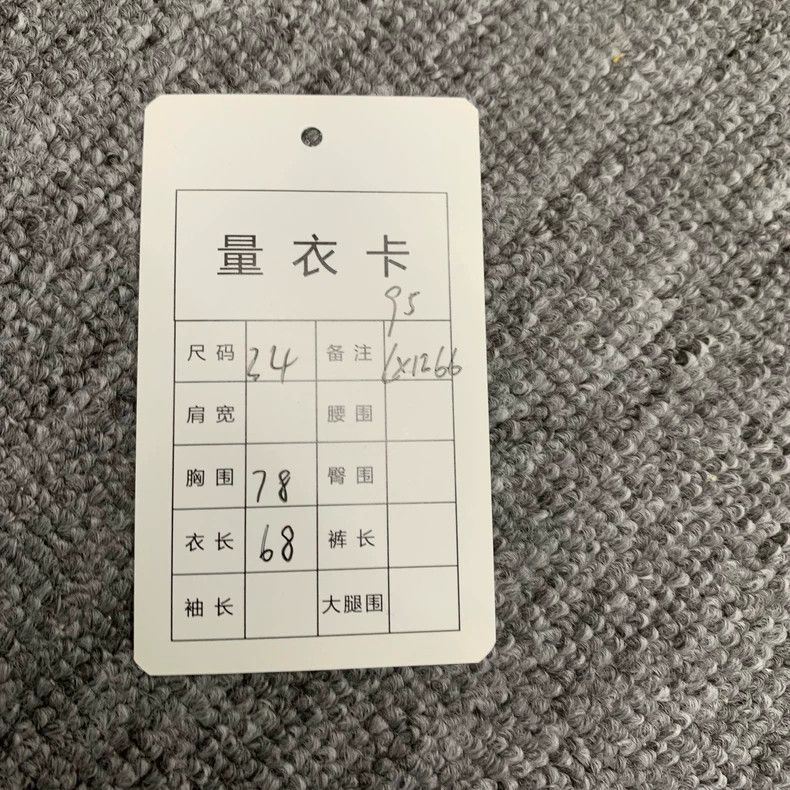 量衣卡
95
尺码 34 备注 LX1266
肩宽 腰围
胸围 78 臀围
衣长 68 裤长
袖长 大腿围